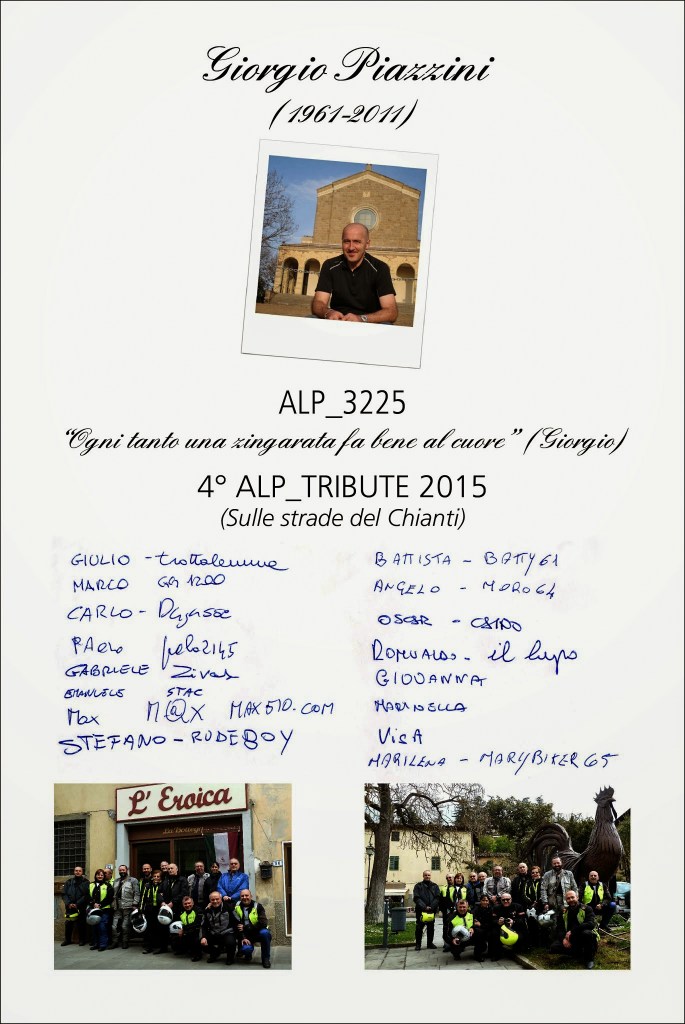 Giorgio Piazzini
(1961-2011)
ALP_3225
"Ogni tanto una zingarata fa bene al cuore" (Giorgio)
4° ALP_TRIBUTE 2015
(Sulle strade del Chianti)
GIULIO - trottalemme
MARCO GA 1200
CARLO -
PAOLO pelo2145
GABRIELE Zivas
EMANUELE STAC
Max M@X MAX510.COM
STEFANO - RUDEBOY
BATTISTA - BATTY61
ANGELO - MORO64
OSCAR -
ROMUALDO - il lupo
GIOVANNA
MARINELLA
VISA
MARILENA - MARYBIKER65
L' Eroica